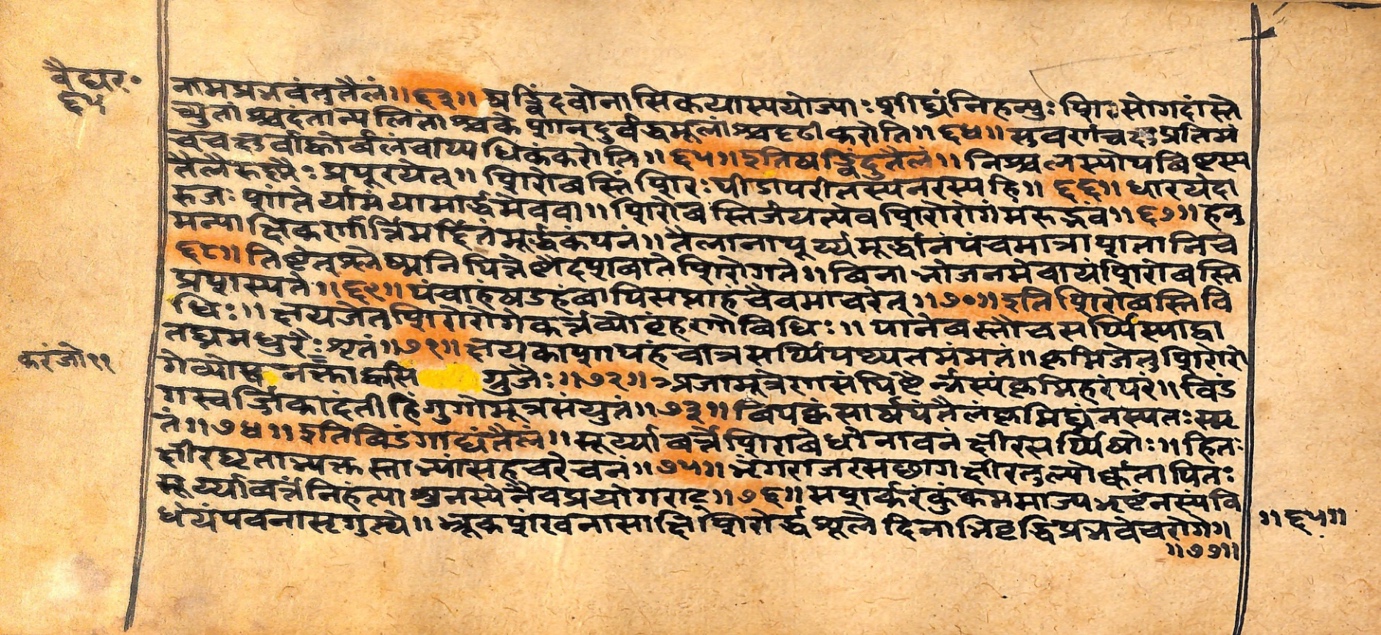 वैद्यर॰
६५
नामप्रभवंतुतैलं॥६३॥ षड्बिंदवोनासिकयाप्रयोज्याः शीघ्रंनिहन्युः शिरसोगदांस्ते
च्युतांश्चदंतान्पलितांश्चकेशान्दुर्बद्धमूलांश्चदृढीकरोति॥६४॥ सुवर्णचक्षुप्रतिमं
चचक्षुर्बाह्वोर्बलंचाप्यधिकंकरोति॥६५॥ इतिषड्बिंदुतैलं॥ निश्चलस्योपविष्टस्य
तैलैरुष्णैः प्रपूरयेत्॥ शिरोबस्तिं शिरःपीडापरीतस्यनरस्यहि॥६६॥ धारयेदा
रुजः शांतेर्यामंयामार्द्धमेववा॥ शिरोबस्तिर्जयत्येवशिरोरोगंमरुद्भवं॥६७॥ हनु
मन्याक्षिकर्णार्त्तिमर्दितंमूर्द्धकंपनं॥ तैलानापूर्य्यमूर्द्धानंपंचमात्राशतानिच
॥६८॥ तिष्टेत्श्लेष्मनिपित्तेष्टैदशवातेशिरोगते॥ विनाभोजनमेवायंशिरोबस्ति
प्रशस्यते॥६९॥ पंचाहंषडहंवापिसप्ताहंचैवमाचरेत्॥७०॥ इति शिरोबस्तिवि
धिः॥ क्षयजेतुशिरोरोगेकर्त्तव्योबृंहणोविधिः॥ पानेबस्तौचसर्प्पिस्याद्वा
तघ्नमधुरैःशृतं॥७१॥ क्षयकाशापहंचात्रसर्प्पिपथ्यतमंमतं॥ कृमिजेतुशिरोरो
करंजो११
गेव्योषनक्ताह्वसि ग्रुजैः॥७२॥ अजामूत्रेणसंपिष्टंनस्यंकृमिहरंपरं॥ विडं
गस्वर्जिकादंतीहिंगुगोमूत्रसंयुतं॥७३॥ विपक्वंसार्षपंतैलंकृमिघ्नंनस्यतःस्मृ
तं॥७४॥ इतिविडंगाद्यंतैलं॥ सूर्य्यावर्त्तेशिरावेधोनावनंक्षीरसर्प्पिषोः॥ हितः
क्षीरघृताभ्यक्तस्ताभ्यांसहचरेचनं॥७५॥ भृंगराजरसछागक्षीरतुल्योर्कतापितः
सूर्य्यावर्त्तंनिहंत्याशुनस्येनैवप्रयोगराट्॥७६॥ सशर्करंकुंकुममाज्यभृष्टंनस्यंवि
धेयंपवनासृगुत्थे॥ भ्रूकर्णशंखनासाक्षिशिरोर्द्धशूलेदिनाभिवृद्धिप्रभवेचरोगे
॥७७॥
॥६५॥